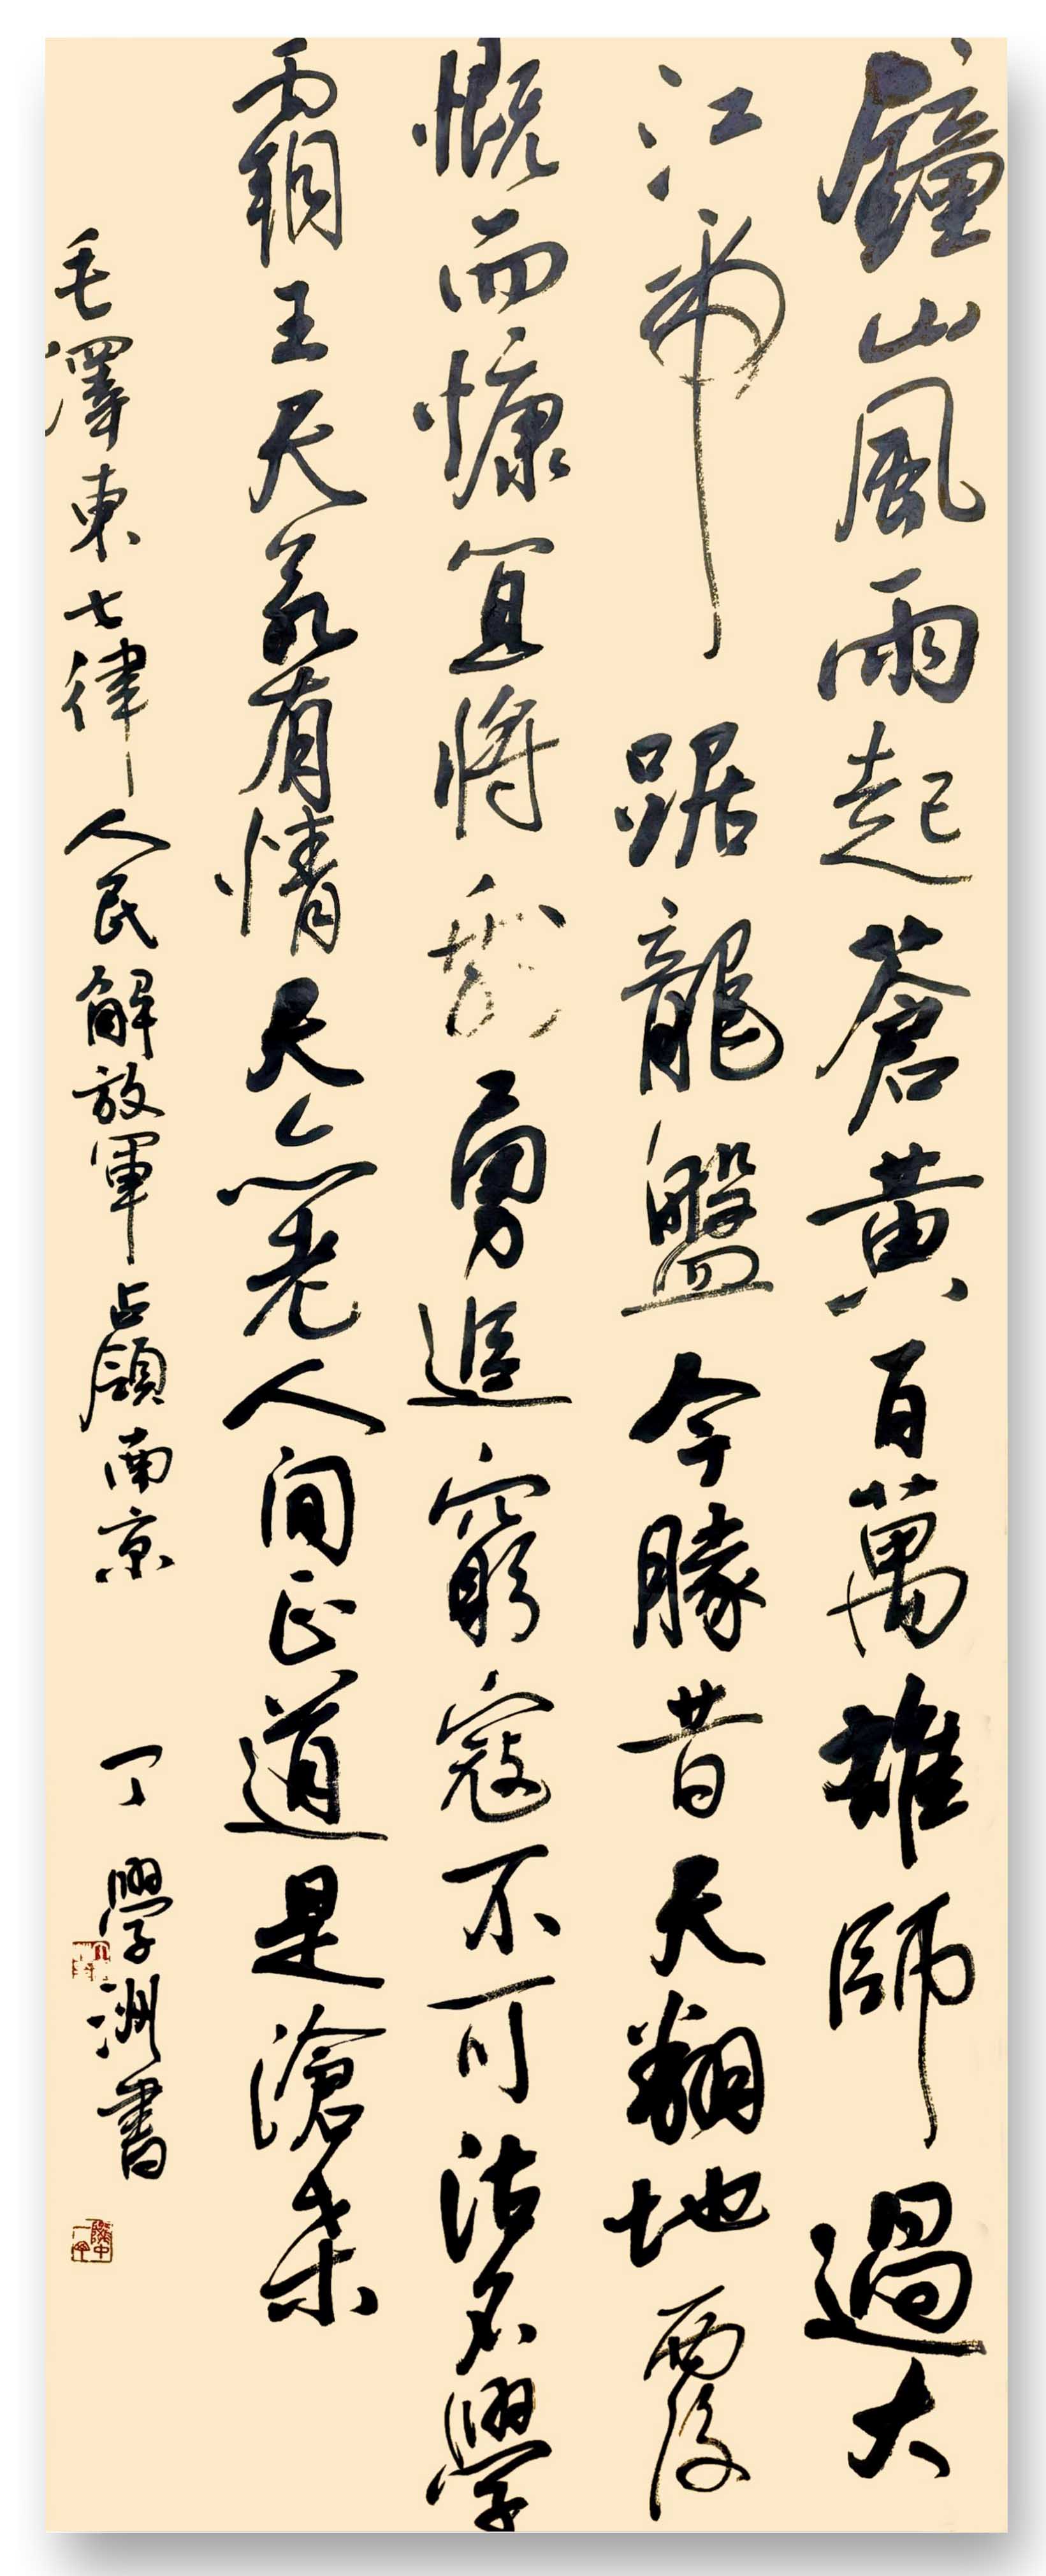 鐘山風雨起蒼黃百萬雄師過大
江虎踞龍盤今勝昔天翻地覆
慨而慷宜將剩勇追窮寇不可沽名學
霸王天若有情天亦老人間正道是滄桑
毛澤東七律人民解放軍占領南京 丁學洲書